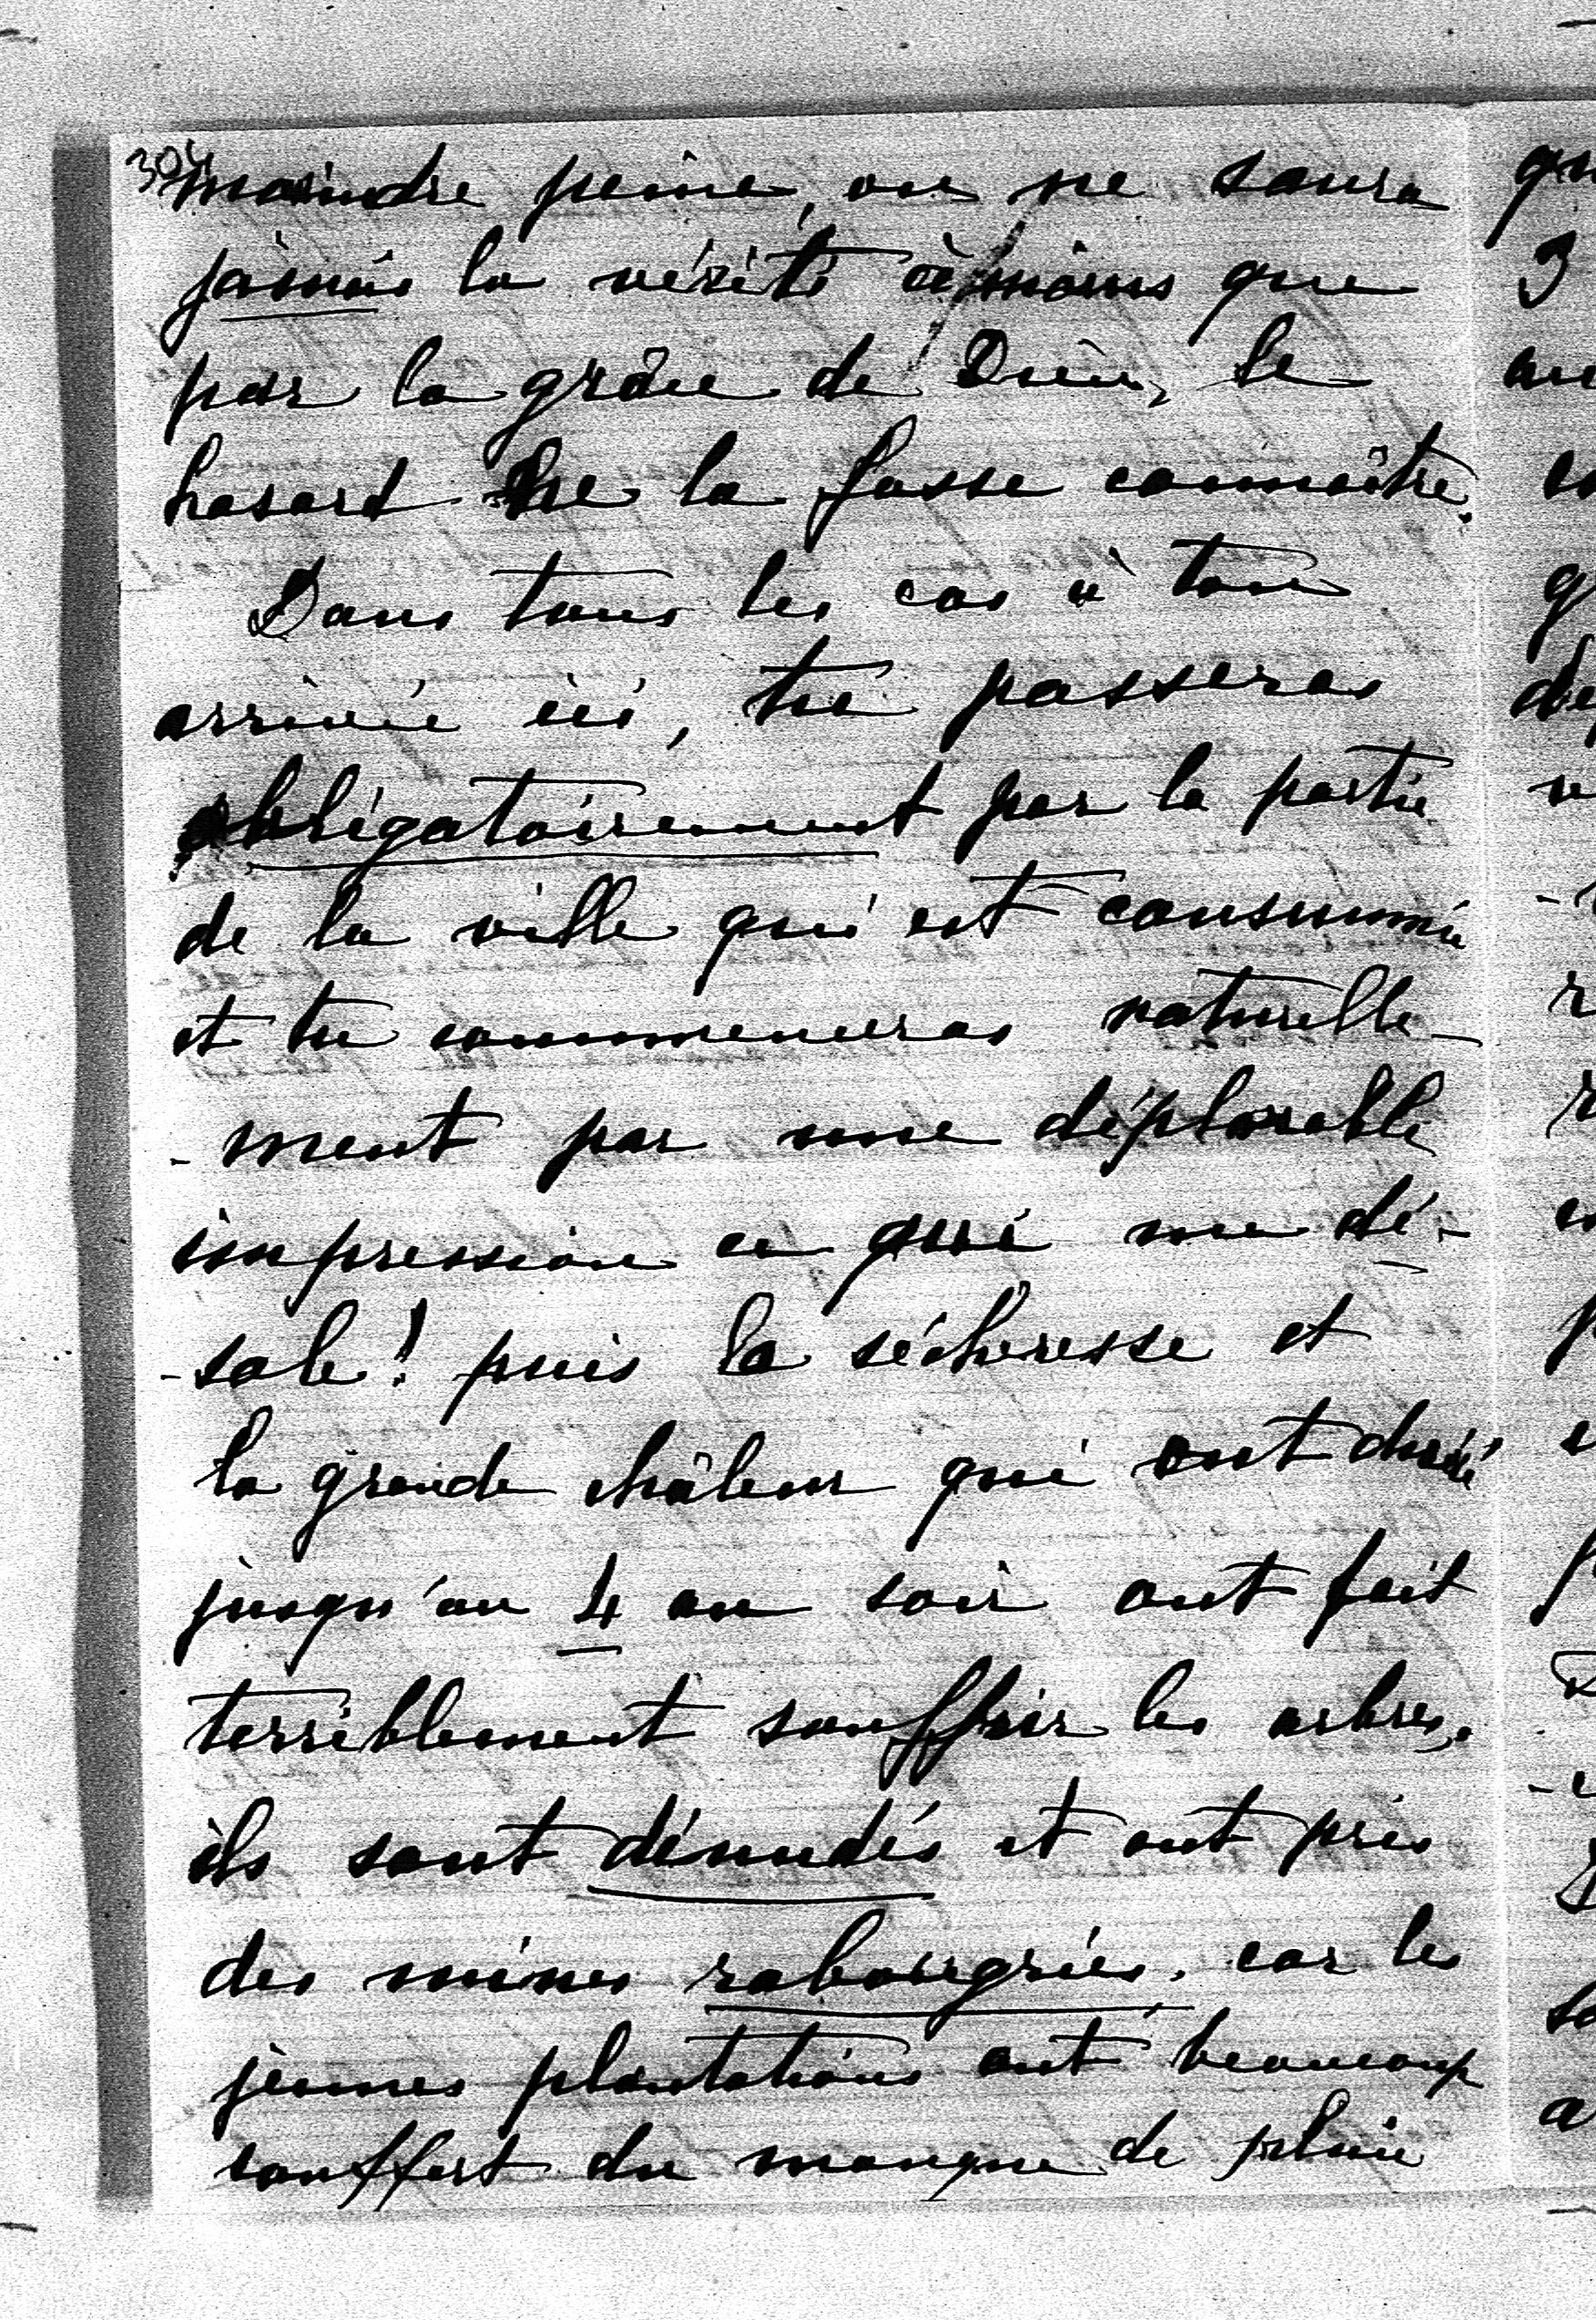 304
moindre peine, on ne saura
jamais la vérité à moins que
par la grâce de Dieu, le
hasard ne la fasse connaître.
Dans tous les cas à ton
arrivée ici, tu passeras
obligatoirement par la partie
de la ville qui est consumée
et tu commenceras naturelle-
-ment par une déplorable
impression ce qui me dé-
-sole! puis la sécheresse et
la grande châleur qui ont duré
jusqu'au 4 au soir ont fait
terriblement souffrir les arbres,
ils sont dénudés et ont pris
des mines rabougries. car les
jeunes plantations ont beaucoup
souffert du manque de pluie